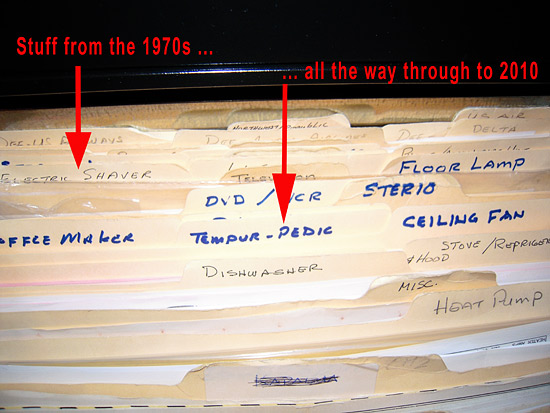 Stuff from the 1970s ...
... all the way through to 2010
NORTHWEST/REPUBLIC
US AIR
DELTA
ELECTRIC SHAVER
TELEVISION
FLOOR LAMP
DVD / VCR
STERIO
OFFEE MAKER
TEMPUR-PEDIC
CEILING FAN
STOVE/REFRIGER
& HOOD
DISHWASHER
MISC.
HEAT PUMP